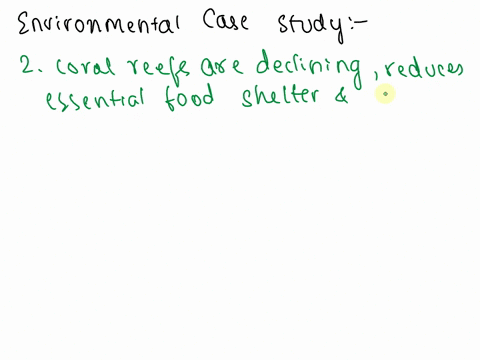 Environmental Case study:-
2. coral reefs are declining, reduces
essential food shelter &